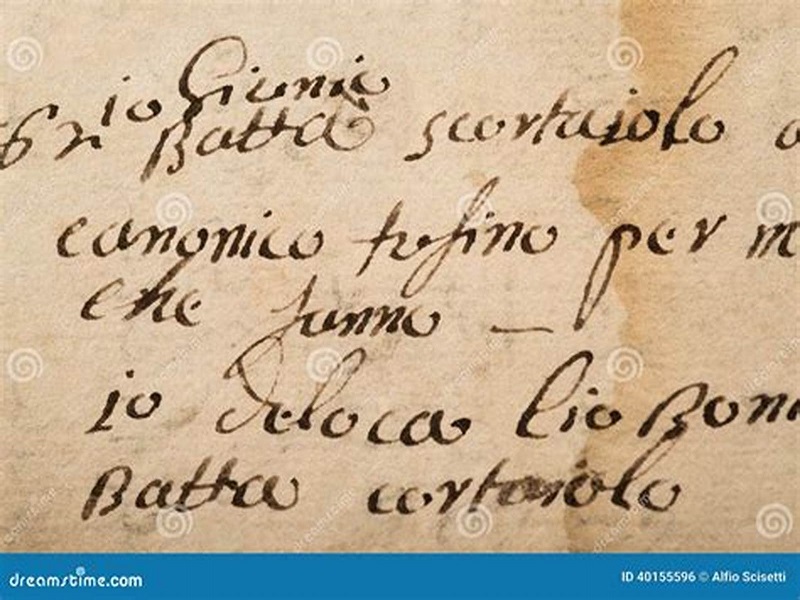 io Giunio
Batta scortaiolo
canonico per
che fanno
io deloca lio Bon
Batta cortaiolo
dreamstime.com
ID 40155596 © Alfio Scisetti